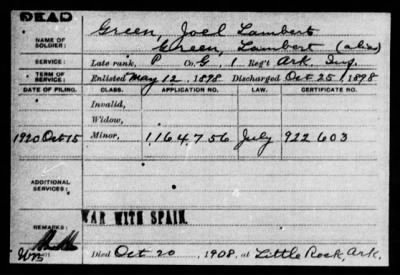 DEAD
NAME OF SOLDIER: Green, Joel Lambert
Green, Lambert (alias)
SERVICE: Late rank, P Co. G, 1 Reg't Ark. Inf.
TERM OF SERVICE: Enlisted May 12, 1898 Discharged Oct 25, 1898
DATE OF FILING. CLASS. APPLICATION NO. LAW. CERTIFICATE NO.
Invalid,
Widow,
1920 Oct 15 Minor, 1,164,756 July 922,603
ADDITIONAL SERVICES:
WAR WITH SPAIN.
REMARKS:
Died Oct 20, 1908, at Little Rock, Ark.